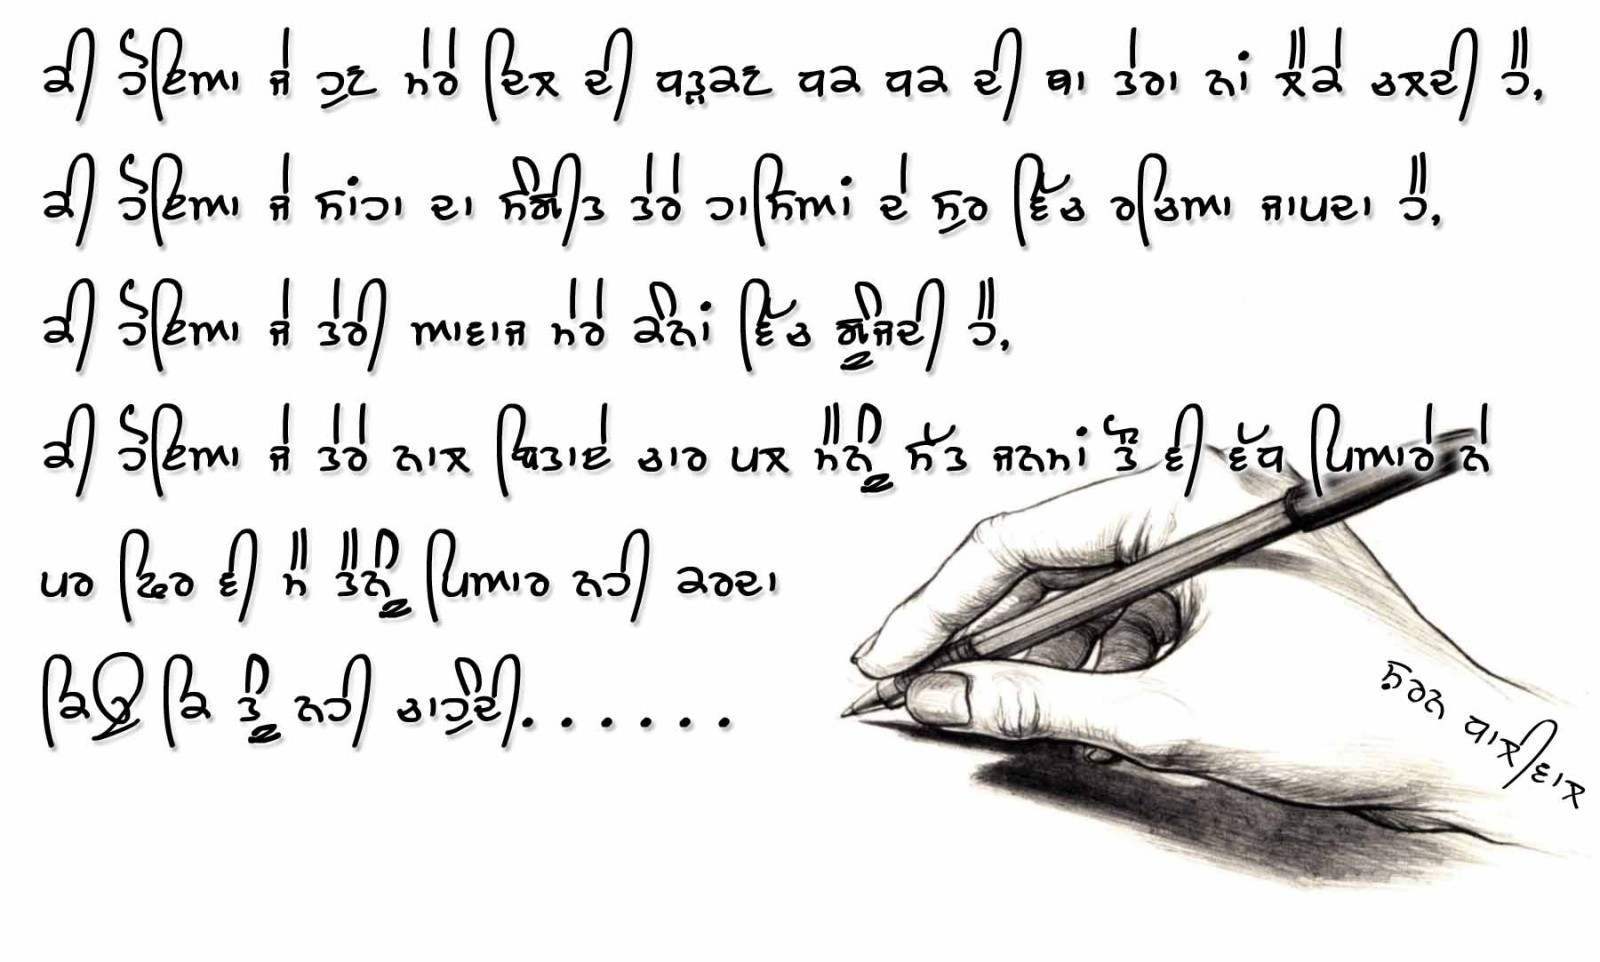 ਕੀ ਹੋਇਆ ਜੇ ਹੁਣ ਮੇਰੇ ਦਿਲ ਦੀ ਧੜਕਣ ਧਕ ਧਕ ਦੀ ਥਾ ਤੇਰਾ ਨਾਂ ਲੈਕੇ ਚਲਦੀ ਹੈ,
ਕੀ ਹੋਇਆ ਜੇ ਸਾਂਹਾ ਦਾ ਸੰਗੀਤ ਤੇਰੇ ਹਾਸਿਆਂ ਦੇ ਸੁਰ ਵਿੱਚ ਰਚਿਆ ਜਾਪਦਾ ਹੈ,
ਕੀ ਹੋਇਆ ਜੇ ਤੇਰੀ ਆਵਾਜ ਮੇਰੇ ਕੰਨਾਂ ਵਿੱਚ ਗੂੰਜਦੀ ਹੈ,
ਕੀ ਹੋਇਆ ਜੇ ਤੇਰੇ ਨਾਲ ਬਿਤਾਏ ਚਾਰ ਪਲ ਮੈਨੂੰ ਸੱਤ ਜਨਮਾਂ ਤੋਂ ਵੀ ਵੱਧ ਪਿਆਰੇ ਨੇ
ਪਰ ਫਿਰ ਵੀ ਮੈ ਤੈਨੂੰ ਪਿਆਰ ਨਹੀ ਕਰਦਾ
ਕਿਉ ਕਿ ਤੂੰ ਨਹੀ ਚਾਹੁੰਦੀ. . . . . .
ਸ਼ਰਨ ਧਾਲੀਵਾਲ